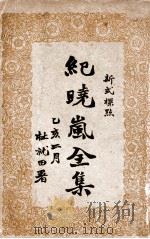 新式標點
紀曉嵐全集
乙亥二月
杜就田署